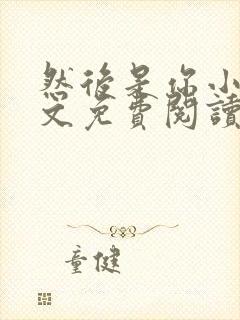 然後是你小
文免費閱讀
童健